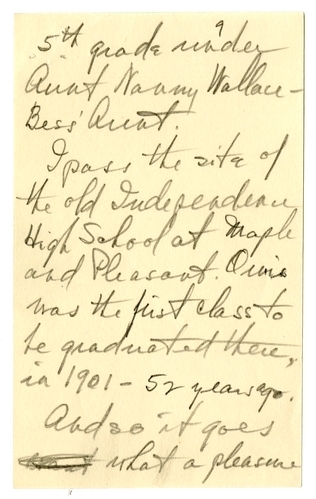 5th grade under
Aunt Nanny Wallace -
Bess' Aunt.
I pass the site of
the old Independence
High School at Maple
and Pleasant. Ours
was the first class to
be graduated there,
in 1901 - 52 years ago.
And so it goes
what a pleasure